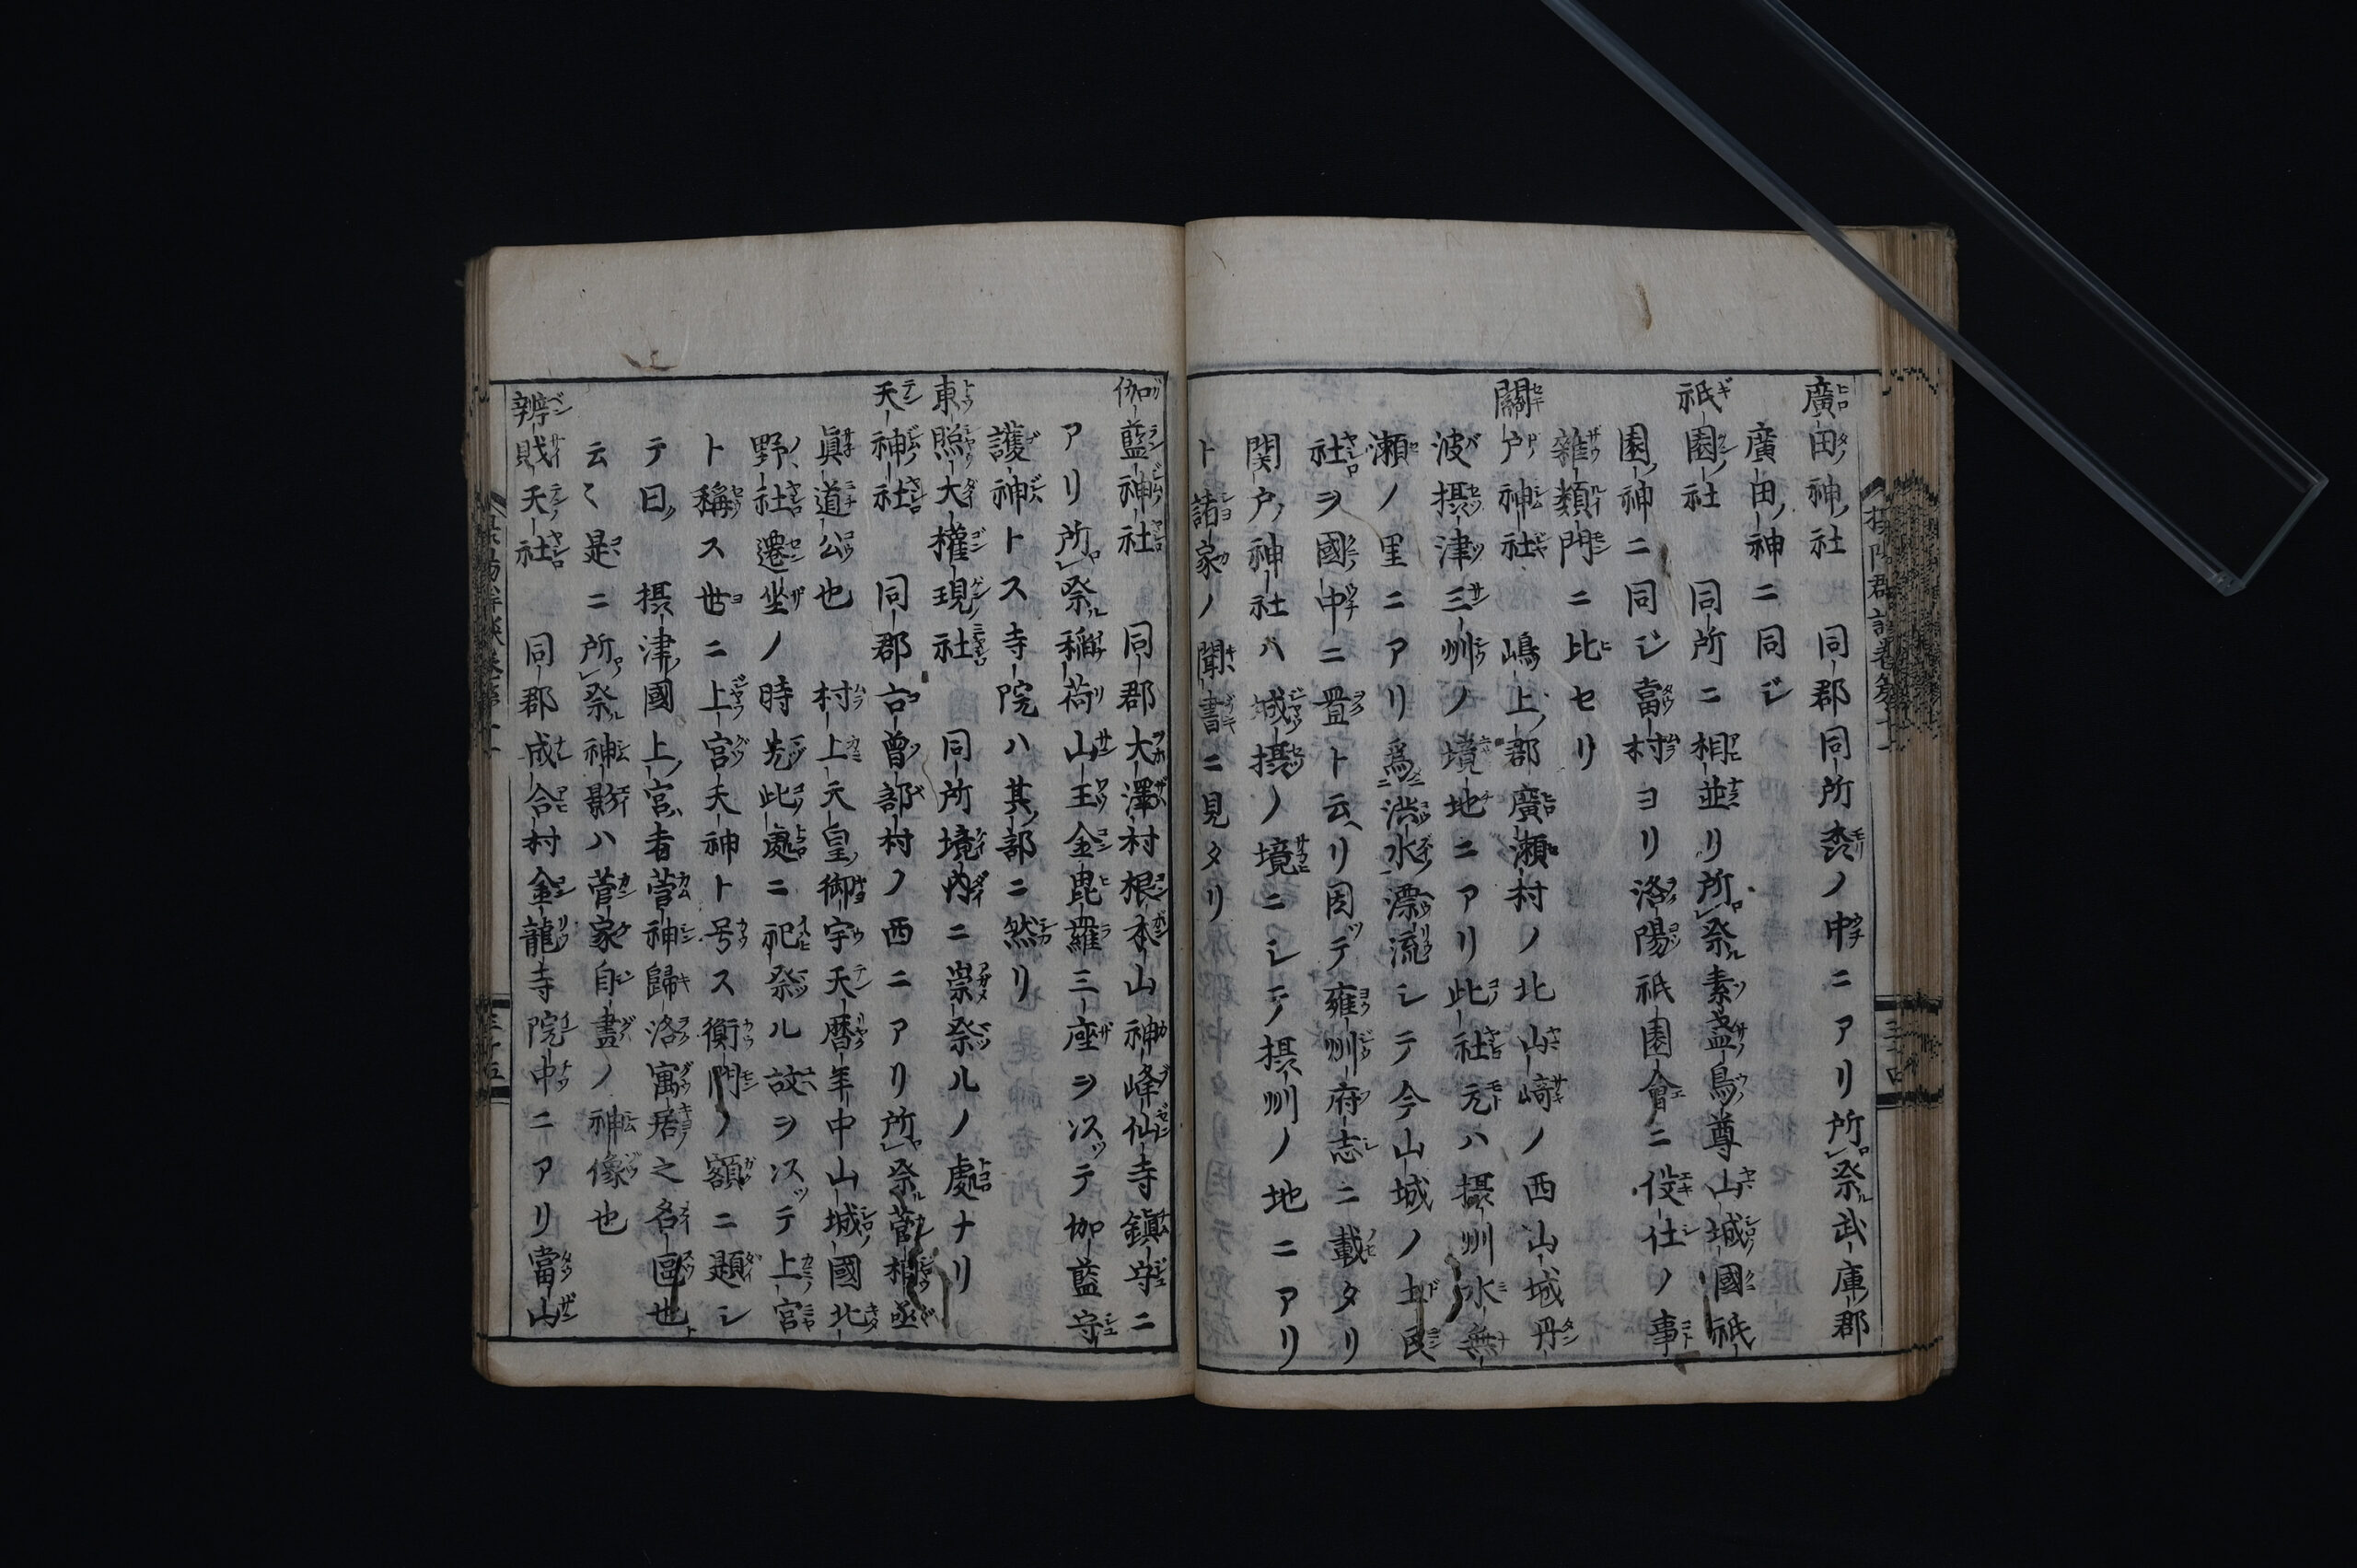 廣田神社 同郡同所森ノ中ニアリ所祭武庫郡
廣田神ニ同ジ
祇園社 同所ニ相並リ所祭素盞烏尊山城國祇
園神ニ同ジ當村ヨリ洛陽祇園會ニ役仕ノ事
雜類門ニ比セリ
關戸神社 嶋上郡廣瀬村ノ北山﨑ノ西山城丹
波摂津三州ノ境地ニアリ此社元ハ摂州水無
瀬ノ里ニアリ爲洪水漂流シテ今山城ノ土民
社ヲ國中ニ置ト云リ因テ雍州府志ニ載タリ
関戸神社ハ城摂ノ境ニシテ摂州ノ地ニアリ
ト諸家ノ聞書ニ見タリ
伽藍神社 同郡大澤村根本山神峰仙寺鎭守ニ
アリ所祭稲荷山王金毘羅三座ヲ以テ伽藍守
護神トス寺院ハ其部ニ然リ
東照大權現社 同所境內ニ崇祭ルノ處ナリ
天神社 同郡古曾部村ノ西ニアリ所祭菅相丞
眞道公也 村上天皇御宇天暦年中山城國北
野社遷坐ノ時先此處ニ祀祭ル故ヲ以テ上宮
ト稱ス世ニ上宮天神ト号ス衡門ノ額ニ題シ
テ曰 摂津國上宮者菅神歸洛寓居之名區也ト
云々是ニ所祭神影ハ菅家自畫ノ神像也
辨財天社 同郡成合村金龍寺院中ニアリ當山